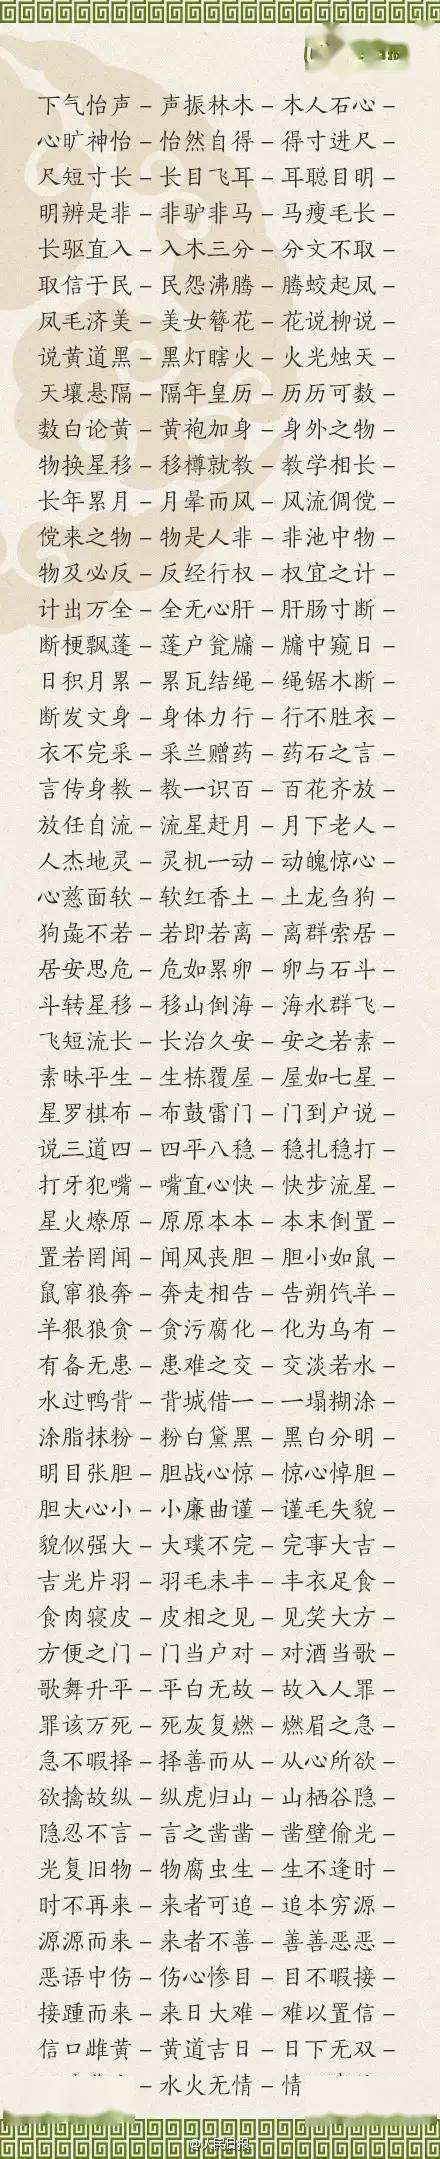 下气怡声－声振林木－木人石心－
心旷神怡－怡然自得－得寸进尺－
尺短寸长－长目飞耳－耳聪目明－
明辨是非－非驴非马－马瘦毛长－
长驱直入－入木三分－分文不取－
取信于民－民怨沸腾－腾蛟起凤－
凤毛济美－美女簪花－花说柳说－
说黄道黑－黑灯瞎火－火光烛天－
天壤悬隔－隔年皇历－历历可数－
数白论黄－黄袍加身－身外之物－
物换星移－移樽就教－教学相长－
长年累月－月晕而风－风流倜傥－
傥来之物－物是人非－非池中物－
物及必反－反经行权－权宜之计－
计出万全－全无心肝－肝肠寸断－
断梗飘蓬－蓬户瓮牖－牖中窥日－
日积月累－累瓦结绳－绳锯木断－
断发文身－身体力行－行不胜衣－
衣不完采－采兰赠药－药石之言－
言传身教－教一识百－百花齐放－
放任自流－流星赶月－月下老人－
人杰地灵－灵机一动－动魄惊心－
心慈面软－软红香土－土龙刍狗－
狗彘不若－若即若离－离群索居－
居安思危－危如累卵－卵与石斗－
斗转星移－移山倒海－海水群飞－
飞短流长－长治久安－安之若素－
素昧平生－生栋覆屋－屋如七星－
星罗棋布－布鼓雷门－门到户说－
说三道四－四平八稳－稳扎稳打－
打牙犯嘴－嘴直心快－快步流星－
星火燎原－原原本本－本末倒置－
置若罔闻－闻风丧胆－胆小如鼠－
鼠窜狼奔－奔走相告－告朔饩羊－
羊狠狼贪－贪污腐化－化为乌有－
有备无患－患难之交－交淡若水－
水过鸭背－背城借一－一塌糊涂－
涂脂抹粉－粉白黛黑－黑白分明－
明目张胆－胆战心惊－惊心悼胆－
胆大心小－小廉曲谨－谨毛失貌－
貌似强大－大璞不完－完事大吉－
吉光片羽－羽毛未丰－丰衣足食－
食肉寝皮－皮相之见－见笑大方－
方便之门－门当户对－对酒当歌－
歌舞升平－平白无故－故入人罪－
罪该万死－死灰复燃－燃眉之急－
急不暇择－择善而从－从心所欲－
欲擒故纵－纵虎归山－山栖谷隐－
隐忍不言－言之凿凿－凿壁偷光－
光复旧物－物腐虫生－生不逢时－
时不再来－来者可追－追本穷源－
源源而来－来者不善－善善恶恶－
恶语中伤－伤心惨目－目不暇接－
接踵而来－来日大难－难以置信－
信口雌黄－黄道吉日－日下无双－
－水火无情－情
@人民日报